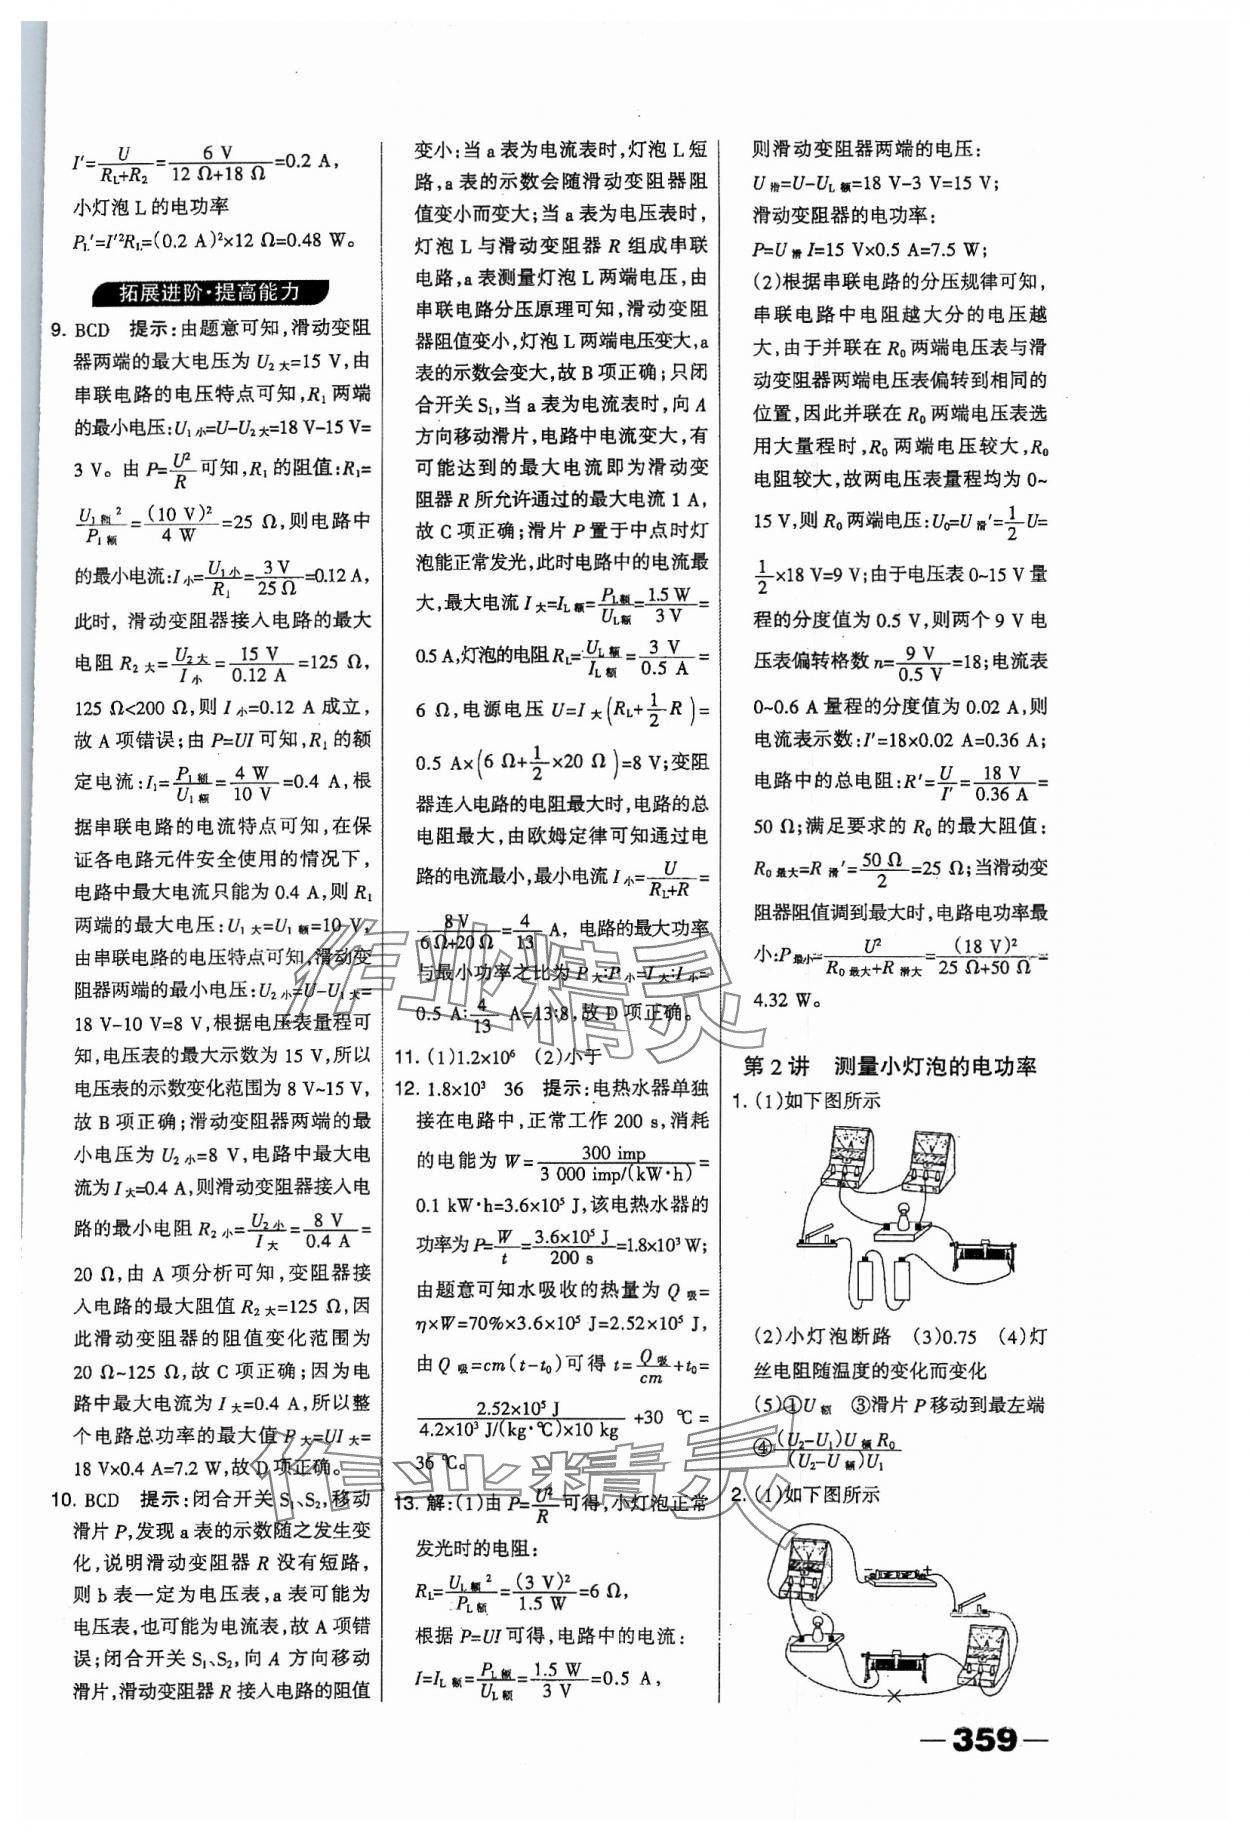 I′=U/(R_L+R₂)=6 V/(12 Ω+18 Ω)=0.2 A,
小灯泡 L 的电功率
P_L′=I′²R_L=(0.2 A)²×12 Ω=0.48 W。
拓展进阶·提高能力
9. BCD 提示:由题意可知,滑动变阻
器两端的最大电压为 U₂大=15 V,由
串联电路的电压特点可知,R₁ 两端
的最小电压:U₁小=U-U₂大=18 V-15 V=
3 V。由 P=U²/R 可知,R₁ 的阻值:R₁=
U₁额²/P₁额=(10 V)²/4 W=25 Ω,则电路中
的最小电流:I小=U₁小/R₁=3 V/25 Ω=0.12 A,
此时,滑动变阻器接入电路的最大
电阻 R₂大=U₂大/I小=15 V/0.12 A=125 Ω,
125 Ω<200 Ω,则 I小=0.12 A 成立,
故 A 项错误;由 P=UI 可知,R₁ 的额
定电流:I₁=P₁额/U₁额=4 W/10 V=0.4 A,根
据串联电路的电流特点可知,在保
证各电路元件安全使用的情况下,
电路中最大电流只能为 0.4 A,则 R₁
两端的最大电压:U₁大=U₁额=10 V,
由串联电路的电压特点可知,滑动变
阻器两端的最小电压:U₂小=U-U₁大=
18 V-10 V=8 V,根据电压表量程可
知,电压表的最大示数为 15 V,所以
电压表的示数变化范围为 8 V~15 V,
故 B 项正确;滑动变阻器两端的最
小电压为 U₂小=8 V,电路中最大电
流为 I大=0.4 A,则滑动变阻器接入电
路的最小电阻 R₂小=U₂小/I大=8 V/0.4 A=
20 Ω,由 A 项分析可知,变阻器接
入电路的最大阻值 R₂大=125 Ω,因
此滑动变阻器的阻值变化范围为
20 Ω~125 Ω,故 C 项正确;因为电
路中最大电流为 I大=0.4 A,所以整
个电路总功率的最大值 P大=UI大=
18 V×0.4 A=7.2 W,故 D 项正确。
10. BCD 提示:闭合开关 S₁、S₂,移动
滑片 P,发现 a 表的示数随之发生变
化,说明滑动变阻器 R 没有短路,
则 b 表一定为电压表,a 表可能为
电压表,也可能为电流表,故 A 项错
误;闭合开关 S₁、S₂,向 A 方向移动
滑片,滑动变阻器 R 接入电路的阻值
变小;当 a 表为电流表时,灯泡 L 短
路,a 表的示数会随滑动变阻器阻
值变小而变大;当 a 表为电压表时,
灯泡 L 与滑动变阻器 R 组成串联
电路,a 表测量灯泡 L 两端电压,由
串联电路分压原理可知,滑动变阻
器阻值变小,灯泡 L 两端电压变大,a
表的示数会变大,故 B 项正确;只闭
合开关 S₁,当 a 表为电流表时,向 A
方向移动滑片,电路中电流变大,有
可能达到的最大电流即为滑动变
阻器 R 所允许通过的最大电流 1 A,
故 C 项正确;滑片 P 置于中点时灯
泡能正常发光,此时电路中的电流最
大,最大电流 I大=I_L额=P_L额/U_L额=1.5 W/3 V=
0.5 A,灯泡的电阻 R_L=U_L额/I_L额=3 V/0.5 A=
6 Ω,电源电压 U=I大(R_L+1/2 R)=
0.5 A×(6 Ω+1/2×20 Ω)=8 V;变阻
器连入电路的电阻最大时,电路的总
电阻最大,由欧姆定律可知通过电
路的电流最小,最小电流 I小=U/(R_L+R)=
8 V/(6 Ω+20 Ω)=4/13 A,电路的最大功率
与最小功率之比为 P大:P小=I大:I小=
0.5 A:4/13 A=13:8,故 D 项正确。
11. (1)1.2×10⁶ (2)小于
12. 1.8×10³ 36 提示:电热水器单独
接在电路中,正常工作 200 s,消耗
的电能为 W=300 imp/(3 000 imp/(kW·h))=
0.1 kW·h=3.6×10⁵ J,该电热水器的
功率为 P=W/t=3.6×10⁵ J/200 s=1.8×10³ W;
由题意可知水吸收的热量为 Q吸=
η×W=70%×3.6×10⁵ J=2.52×10⁵ J,
由 Q吸=cm(t-t₀)可得 t=Q吸/cm+t₀=
2.52×10⁵ J/(4.2×10³ J/(kg·℃)×10 kg)+30 ℃=
36 ℃。
13. 解:(1)由 P=U²/R 可得,小灯泡正常
发光时的电阻:
R_L=U_L额²/P_L额=(3 V)²/1.5 W=6 Ω,
根据 P=UI 可得,电路中的电流:
I=I_L额=P_L额/U_L额=1.5 W/3 V=0.5 A,
则滑动变阻器两端的电压:
U滑=U-U_L额=18 V-3 V=15 V;
滑动变阻器的电功率:
P=U滑I=15 V×0.5 A=7.5 W;
(2)根据串联电路的分压规律可知,
串联电路中电阻越大分的电压越
大,由于并联在 R₀ 两端电压表与滑
动变阻器两端电压表偏转到相同的
位置,因此并联在 R₀ 两端电压表选
用大量程时,R₀ 两端电压较大,R₀
电阻较大,故两电压表量程均为 0~
15 V,则 R₀ 两端电压:U₀=U滑′=1/2 U=
1/2×18 V=9 V;由于电压表 0~15 V 量
程的分度值为 0.5 V,则两个 9 V 电
压表偏转格数 n=9 V/0.5 V=18;电流表
0~0.6 A 量程的分度值为 0.02 A,则
电流表示数:I′=18×0.02 A=0.36 A;
电路中的总电阻:R′=U/I′=18 V/0.36 A=
50 Ω;满足要求的 R₀ 的最大阻值:
R₀最大=R滑′=50 Ω/2=25 Ω;当滑动变
阻器阻值调到最大时,电路电功率最
小:P最小=U²/(R₀最大+R滑大)=(18 V)²/(25 Ω+50 Ω)=
4.32 W。
第 2 讲 测量小灯泡的电功率
1. (1)如下图所示
(2)小灯泡断路 (3)0.75 (4)灯
丝电阻随温度的变化而变化
(5)①U额 ③滑片 P 移动到最左端
④(U₂-U₁)U额R₀/(U₂-U额)U₁
2. (1)如下图所示
— 359 —
作业精灵
作业精灵